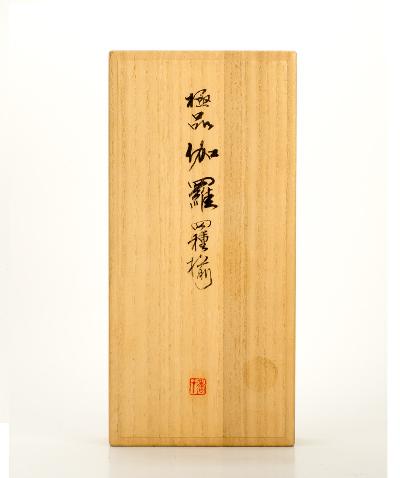 極品伽羅四種揃